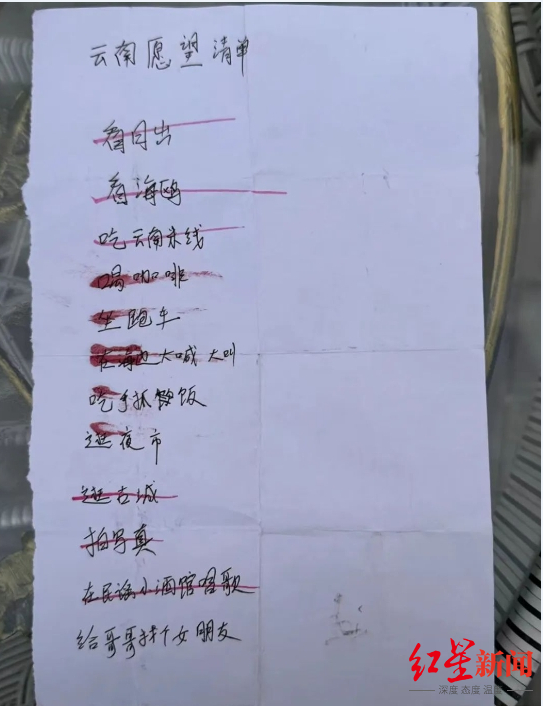 云南愿望清单
看日出
看海鸥
吃云南米线
喝咖啡
坐跑车
在海边大喊大叫
吃手抓饭
逛夜市
逛古城
拍写真
在民谣小酒馆唱歌
给哥哥找个女朋友
红星新闻
深度 态度 温度